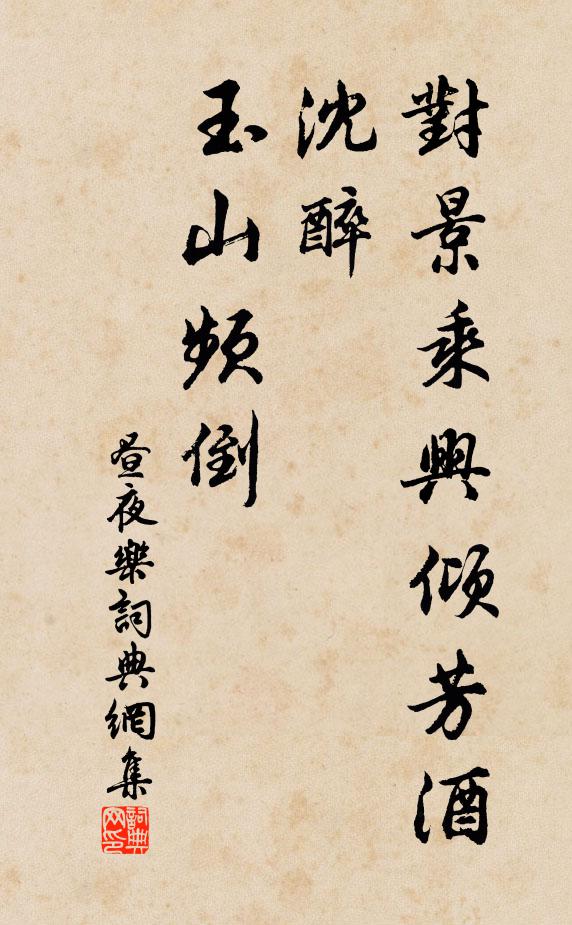 對景乘興傾芳酒
沈醉
玉山頻倒
晝夜樂詞典網集
詞典
网印